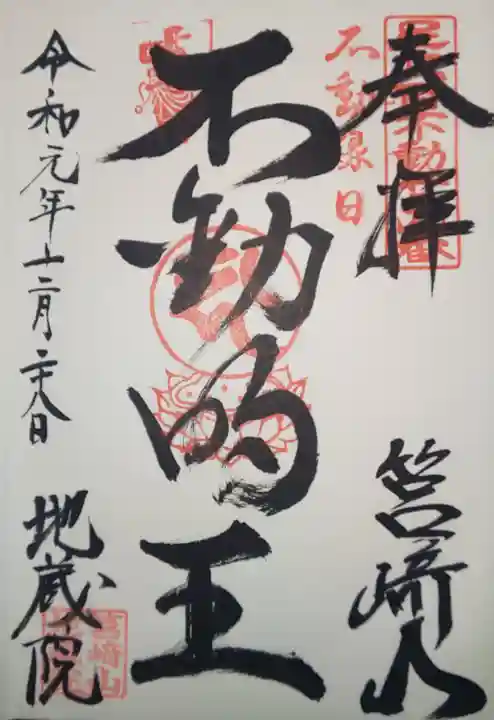 奉拝
筥﨑山
不動縁日
不動明王
令和元年十二月二十八日
地蔵院
筥﨑山